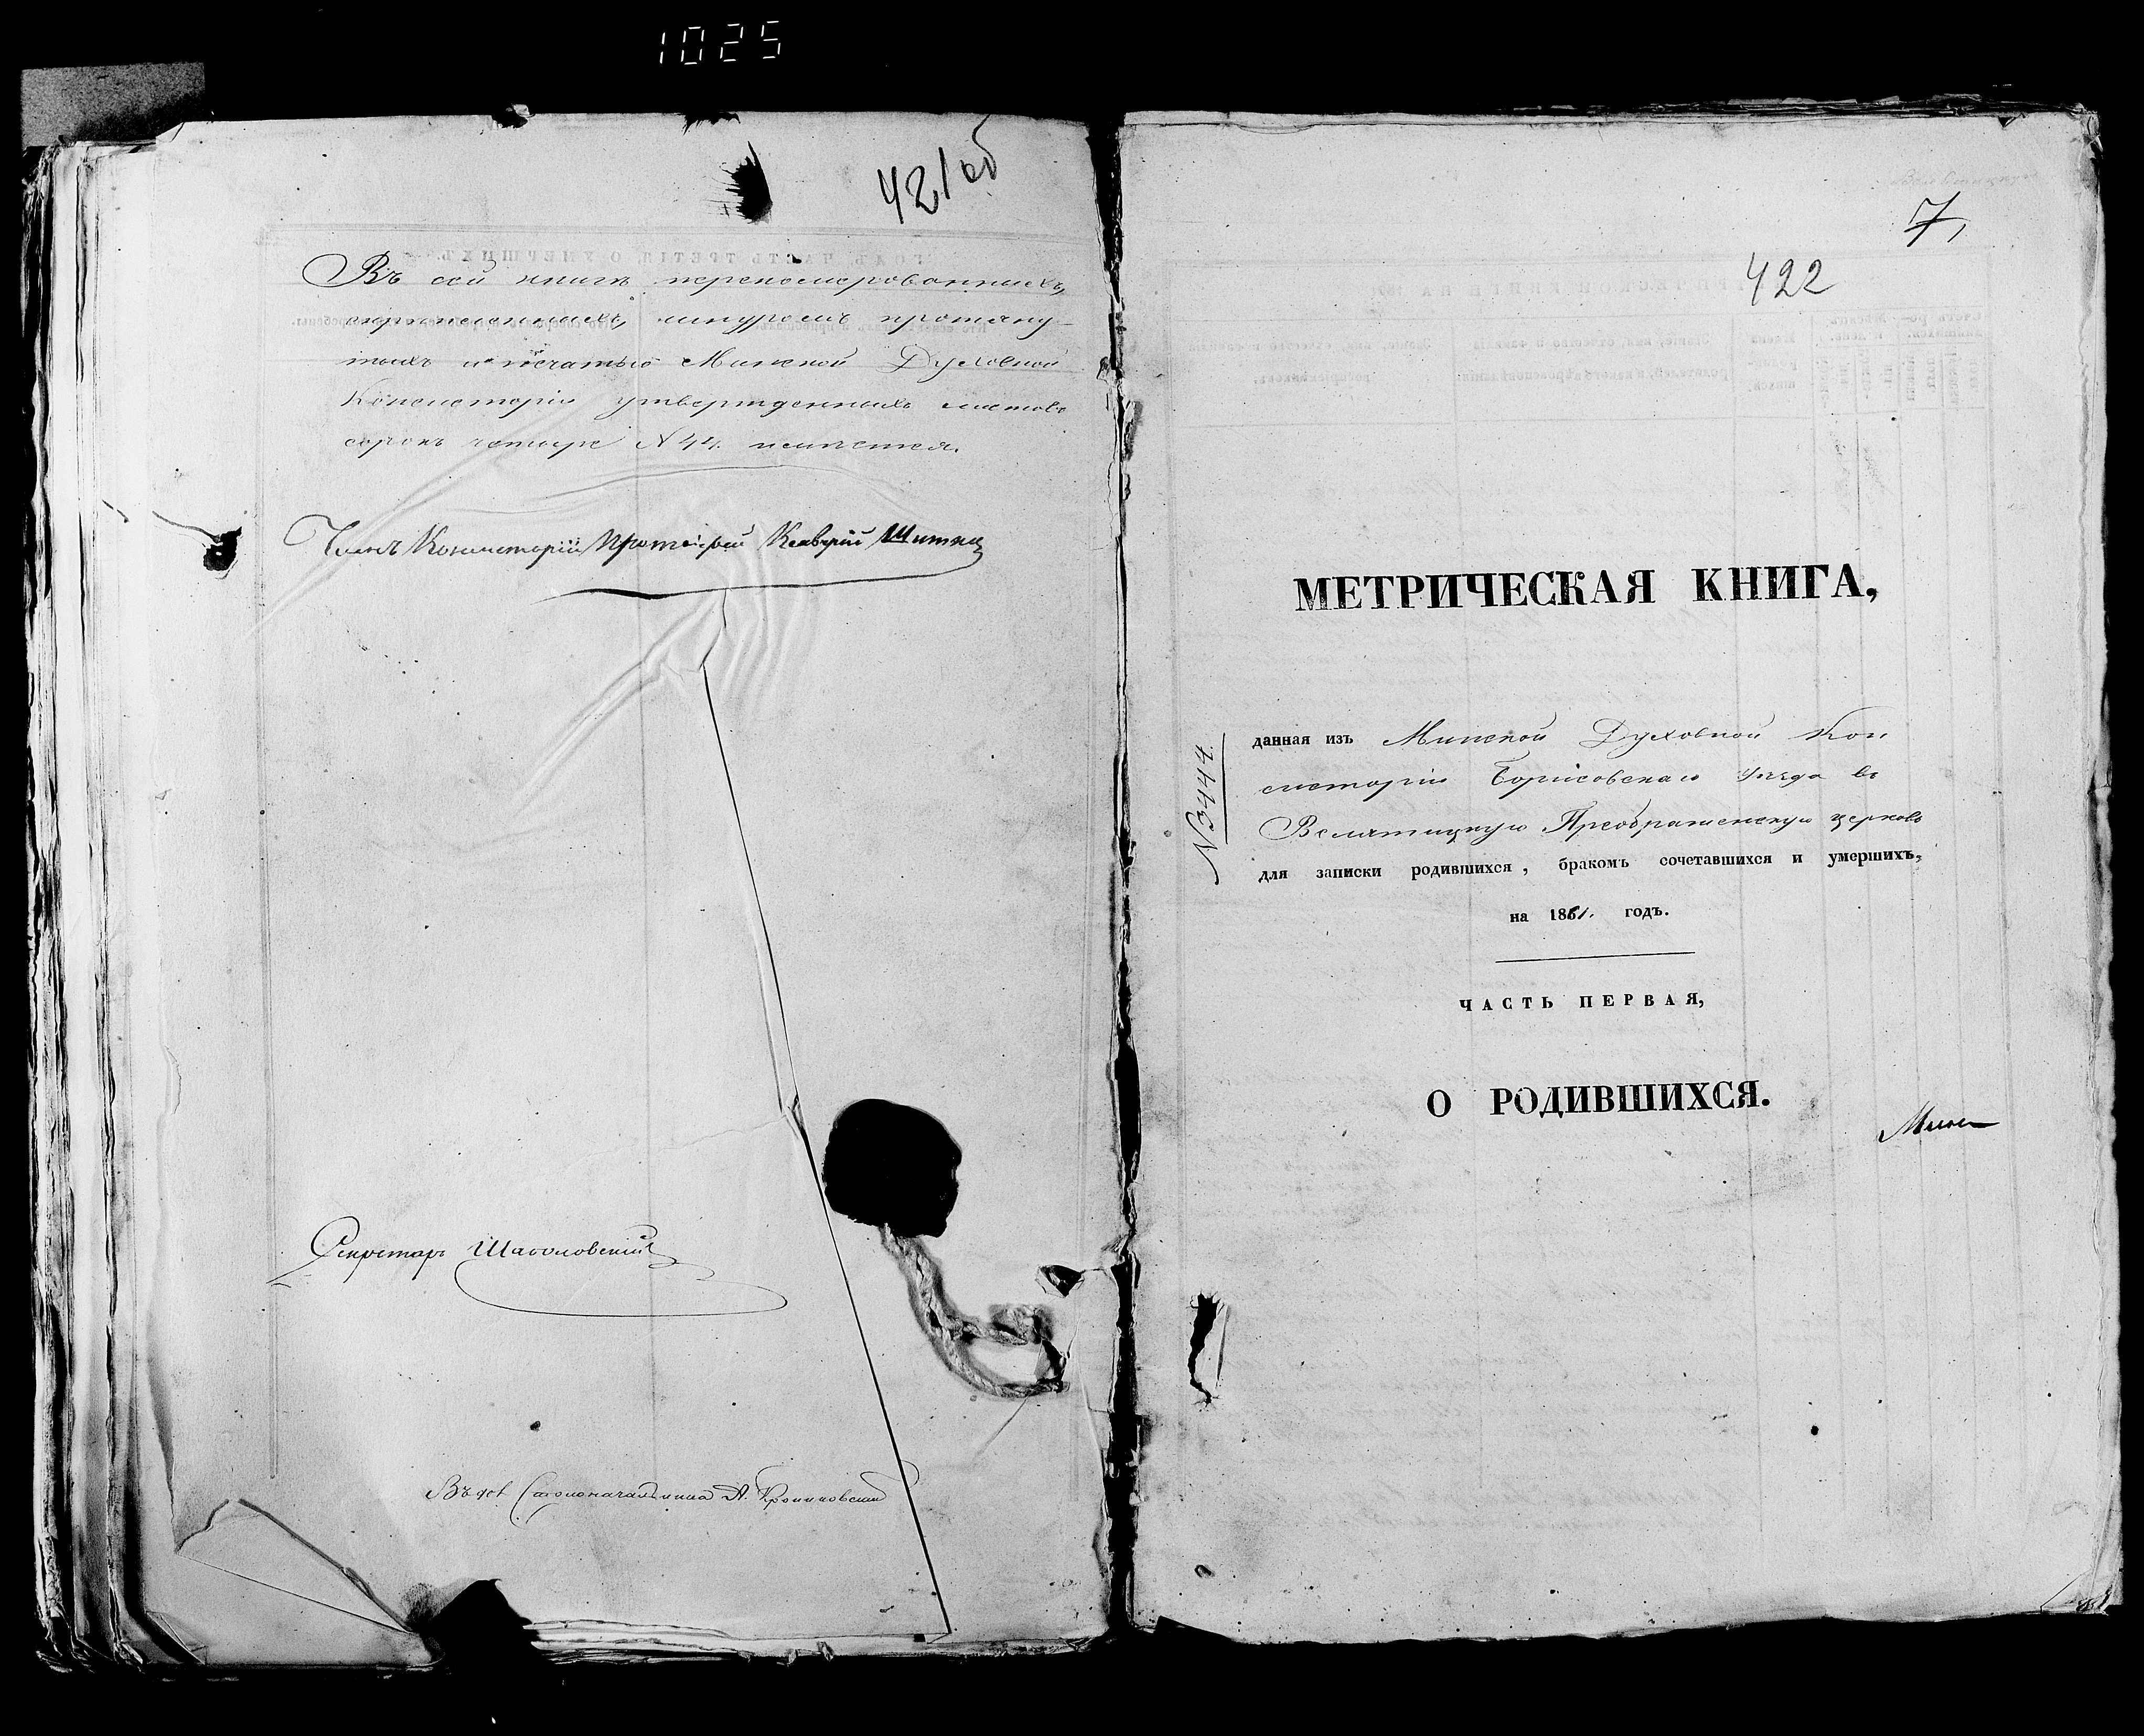 1025
421об
Въ сей книгѣ переномерованныхъ,
скрепленныхъ, шнуромъ протяну-
тыхъ и печатью Минской Духовной
Консисторіи утвержденныхъ листовъ
сорокъ четыре N 44. имѣется.
Членъ Консисторіи Протоіерей
Секретарь
Столоначальника А.
7,
422
МЕТРИЧЕСКАЯ КНИГА,
N 3444.
данная изъ Минской Духовной Кон
систоріи Борисовскаго уѣзда въ
Велятицкую Преображенскую церковь
для записки родившихся, бракомъ сочетавшихся и умершихъ,
на 1861. годъ.
ЧАСТЬ ПЕРВАЯ,
О РОДИВШИХСЯ.